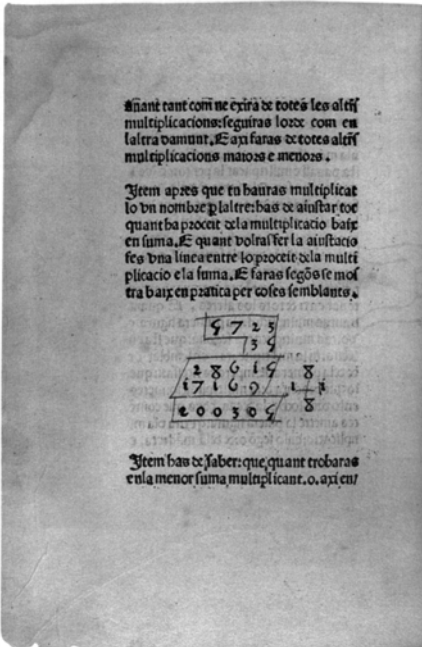 anant tant com̃ ne exira de totes les altr̃s
multiplicacions: seguiras lorde com en
laltra damunt. E axi faras de totes altr̃s
multiplicacions maiors e menors.
Item apres que tu hauras multiplicat
lo vn nombre ꝑ laltre: has de aiustar tot
quant ha proceit dela multiplicacio baix
en suma. E quant volras fer la aiustacio
fes vna linea entre lo proceit dela multi
plicacio e la suma. E faras segõs se mos
tra baix en pratica per coses semblants.
5 7 2 3
3 5
2 8 6 1 5 8
1 7 1 6 9 1 1
8
2 0 0 3 0 5
Item has de saber: que, quant trobaras
en la menor suma multiplicant .0. axi en/